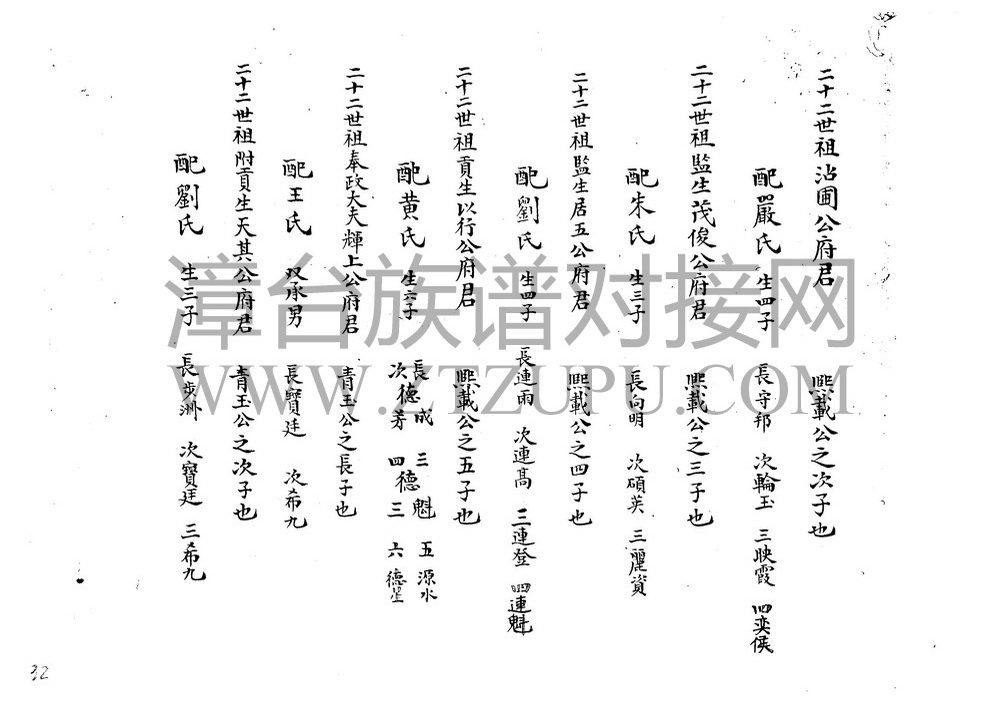 二十二世祖沾圃公府君 熙載公之次子也
配嚴氏 生四子 長守邦 次輪玉 三映霞 四奕侯
二十二世祖監生茂俊公府君 熙載公之三子也
配朱氏 生三子 長向明 次碩英 三麗資
二十二世祖監生居五公府君 熙載公之四子也
配劉氏 生四子 長連雨 次連高 三連登 四連魁
二十二世祖貢生以行公府君 熙載公之五子也
配黃氏 生六子 長成 三魁 五源水
次德芳 四德三 六德星
二十二世祖奉政大夫輝上公府君 青玉公之長子也
配王氏 双承男 長寶廷 次希九
二十二世祖附貢生天其公府君 青玉公之次子也
配劉氏 生三子 長步洲 次寶廷 三希九
漳台族谱对接网
WWW.ZTZUPU.COM
32